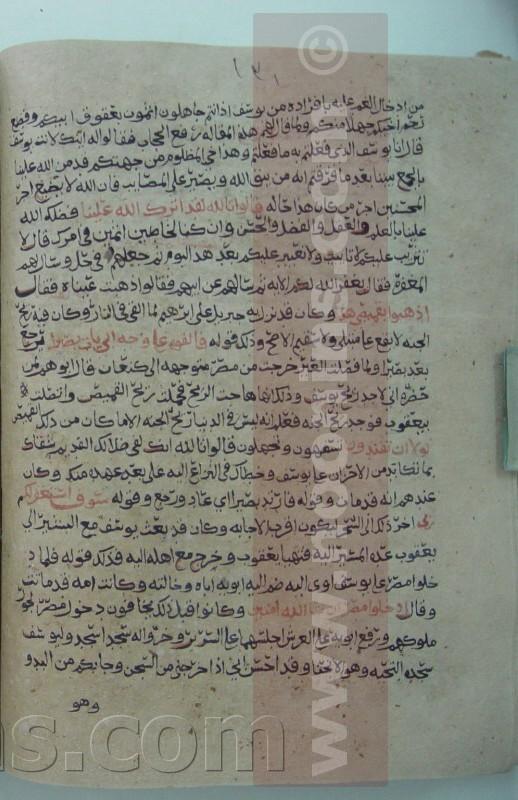 ١٣١
من ادخال الغم عليه بافراده من يوسف اذ انتم جاهلون اثمون بعقوق ابيكم وقطع
رحم اخيكم جهلا منكم ولما قال لهم هذه المقاله رفع الحجاب فقالوا له ائنك لانت يوسف
قال انا يوسف الذي فعلتم به ما فعلتم وهذا اخي المظلوم من جهتكم قد من الله علينا
بالجمع بيننا بعد ما فرقتم انه من يتق الله ويصبر على المصايب فان الله لا يضيع اجر
المحسنين اجر من كان هذا حاله قالوا تالله لقد اثرك الله علينا فضلك الله
علينا بالعلم والعقل والفضل والحسن وان كنا لخاطين اثمين في امرك قال لا
تثريب عليكم لا تانيب ولا تعيير عليكم بعد هذا اليوم ثم جعلهم في حل وسال لهم
المغفرة فقال يغفر الله لكم الاية ثم سالهم عن ابيهم فقالوا ذهبت عيناه فقال
اذهبوا بقميصي هذا وكان قد نزل به جبريل على ابرهيم لما القي في النار وكان فيه ريح
الجنه لا يقع على مبتلى ولا سقيم الا صح وذلك قوله فالقوه على وجه ابي يات بصيرا يرجع
بعد بصيرا ولما فصلت العير خرجت من مصر متوجهه الى كنعان قال ابوهم لمن
حضره اني لاجد ريح يوسف وذلك انها هاجت الريح فحملت ريح القميص واتصلت
بيعقوب فوجد ريح الجنه فعلم انه ليس في الدنيا ريح الجنه الا ما كان من ذلك القميص
لولا ان تفندون تسفهون وتجهلون قالوا تالله انك لفي ضلالك القديم شقاك
بما تكابد من الاحزان على يوسف وخطاك في النزاع اليه على بعد عهده منك وكان
عندهم انه قد مات وقوله فارتد بصيرا اي عاد ورجع وقوله سوف استغفر لكم
ربي اخر ذلك الى السحر ليكون اقرب الى الاجابه وكان قد بعث يوسف مع البشير الى
يعقوب عدة المسير اليه فتهيا يعقوب وخرج مع اهله اليه فذلك قوله فلما د
خلوا على يوسف اوى اليه ضم اليه ابويه اباه وخالته وكانت امه قد ماتت
وقال ادخلوا مصر ان شا الله امنين وكانوا قبل ذلك يخافون دخول مصر لجور
ملوكهم ورفع ابويه على العرش اجلسهما على السرير وخروا له سجدا سجدوا ليوسف
سجدة التحيه وهو الانحنا وقد احسن الي اذ اخرجني من السجن وجا بكم من البدو
وهو
© www.rconitsa.com
ns.com